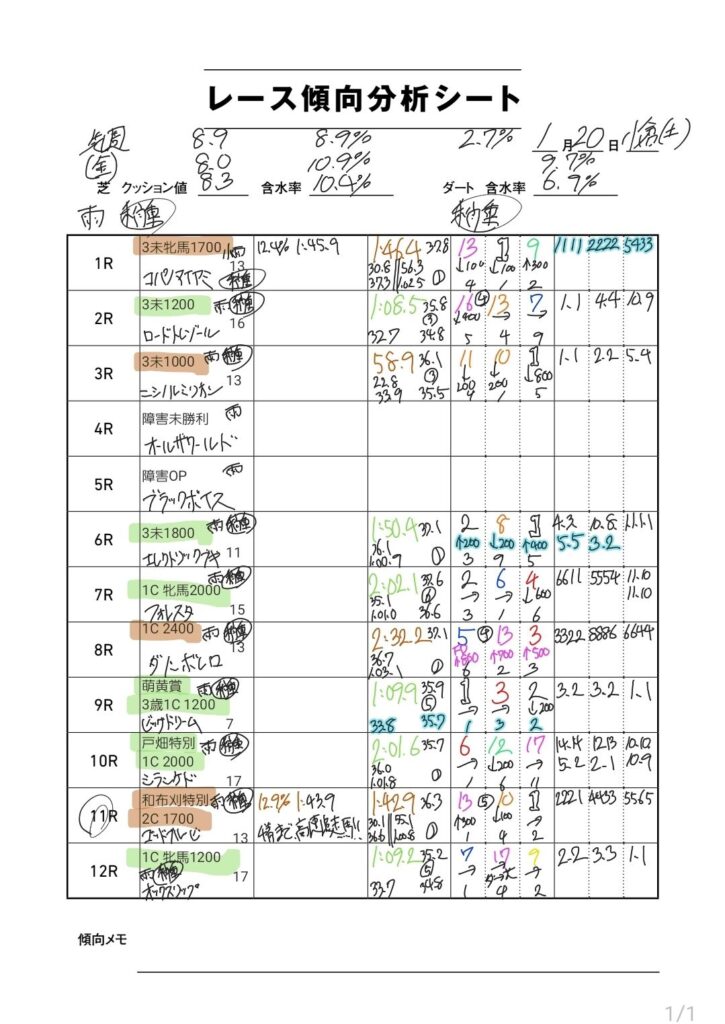 レース傾向分析シート
先週 8.9 8.9% 2.7% 1月20日 小倉(土)
(金) 8.0 10.9% 9.7%
芝 クッション値 8.3 含水率 10.4% ダート 含水率 6.9%
雨 稍重 稍重
1R 3未牝馬1700 雨 12.4% 1:45.9 1:46.4 37.8 13 1 9 1111 2222 5433
13 30.8 56.3 ↓100 ↓100 ↑300
コパノマイアミ 稍重 37.3 1:02.5 ① 4 1 2
2R 3未1200 雨 稍重 1:08.5 35.8 16 ④ 13 7 1.1 4.4 10.9
16 ③ ↓400 → →
ロードトレゾール 32.7 34.8 5 4 9
3R 3未1000 雨 稍重 58.9 36.1 11 10 1 1.1 2.2 5.4
13 22.8 ③ ↓200 ↓200 ↓800
ニシノルミリオン 33.9 35.5 4 1 5
4R 障害未勝利 雨
オールザワールド
5R 障害OP 雨
ブラックボイス
6R 3未1800 雨 稍重 1:50.4 37.1 2 8 1 4.3 10.8 11.11
36.1 ↑200 ↓200 ↑400 5.5 3.2
11 1:00.9 ① 3 9 5
7R 1C 牝馬2000 雨 稍重 2:02.1 37.6 2 6 4 6611 5554 11.10
35.1 ④ → → ↓600 11.10
フォレスタ 15 1:01.0 36.6 3 1 6
8R 1C 2400 雨 稍重 2:32.2 37.1 5 ④ 13 3 3322 8886 6644
13 36.7 ↑800 ↑700 ↑500
ダノンボレロ 1:03.1 ① 6 2 3
9R 萌黄賞 雨 稍重 1:09.9 35.9 1 3 2 3.2 3.2 1.1
3歳1C 1200 ⑤ → → ↓200
ビッグドリーム 7 33.8 35.7 1 3 2
10R 戸畑特別 雨 稍重 2:01.6 35.7 6 12 17 14.14 12.13 10.10
1C 2000 36.0 → ↓200 → 5.2 2.1 10.9
シランケド 17 1:01.8 ① 1 6 11
11R 和布刈特別 雨 稍重 12.9% 1:43.9 1:42.9 36.3 13 ⑤ 10 1 2221 4433 5565
2C 1700 稍重で高速馬場!! 30.1 55.1 ↑300 ↓100 →
ゴッドブルービー 13 36.6 1:00.8 ① 1 4 2
12R 1C 牝馬1200 1:09.2 35.2 7 17 9 2.2 3.3 1.1
雨 稍重 17 ⑤ → ダート →
オックスリップ 33.7 34.8 1 4 2
傾向メモ
1/1